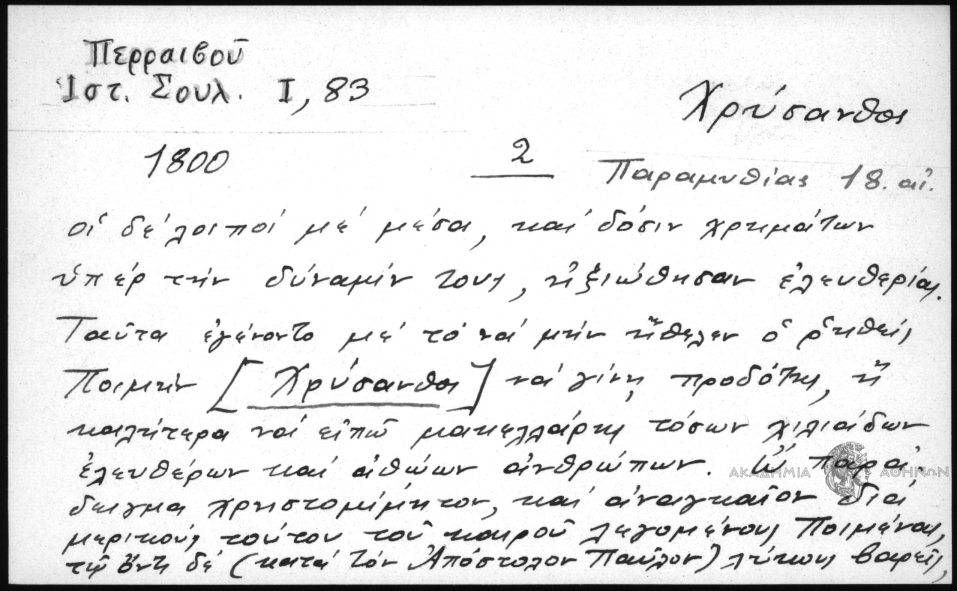 Περραιβοῦ
Ἱστ. Σουλ. Ι, 83
Χρύσανθος
1800
2
Παραμυθίας 18. αἰ.
οἱ δέ λοιποί μέ μέσα, καί δόσιν χρημάτων
ὑπέρ τήν δύναμίν τους, ἠξιώθησαν ἐλευθερίας.
Ταῦτα ἐγένοντο μέ τό νά μήν ἤθελεν ὁ ῥηθείς
Ποιμήν [Χρύσανθος] νά γίνῃ προδότης, ἤ
καλήτερα νά εἰπῶ μακελλάρης τόσων χιλιάδων
ἐλευθέρων καί ἀθώων ἀνθρώπων. Ὦ παρά-
δειγμα χρηστομίμητον, καί ἀναγκαῖον διά
μερικούς τούτου τοῦ καιροῦ λεγομένους Ποιμένας,
τῷ ὄντι δέ (κατά τόν Ἀπόστολον Παῦλον) λύκους βαρεῖς,
ΑΚΑΔΗΜΙΑ ΑΘΗΝΩΝ